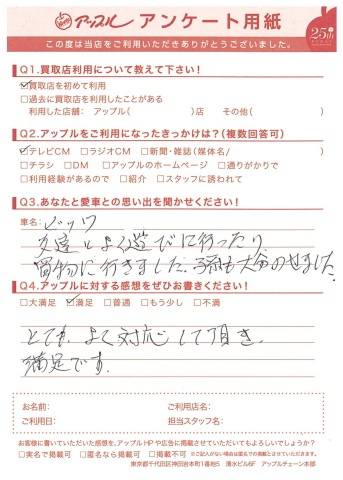 アップル アンケート用紙
25th
この度は当店をご利用いただきありがとうございました。
Q1.買取店利用について教えて下さい！
☑買取店を初めて利用
□過去に買取店を利用したことがある
利用した店舗： アップル（ ）店 その他（ ）
Q2.アップルをご利用になったきっかけは？（複数回答可）
☑テレビCM □ラジオCM □新聞・雑誌（媒体名/ ）
□チラシ □DM □アップルのホームページ □通りがかりで
□利用経験があるので □紹介 □スタッフに誘われて
Q3.あなたと愛車との思い出を聞かせください！
車名：
友達とよく遊びに行ったり
買物に行きました。 も大分のせました。
Q4.アップルに対する感想をぜひお書きください！
□大満足 ☑満足 □普通 □もう少し □不満
とても よく対応して頂き
満足です。
お名前： ご利用店名：
ご利用日： 担当スタッフ名：
お客様に書いていただいた感想を、アップルHPや広告に掲載させていただいてもよろしいでしょうか？
□実名で掲載可 □匿名なら掲載可 □掲載不可 ※ご記入がない場合は匿名での掲載とさせていただきます。
東京都千代田区神田岩本町1番地5 清水ビル6F アップルチェーン本部